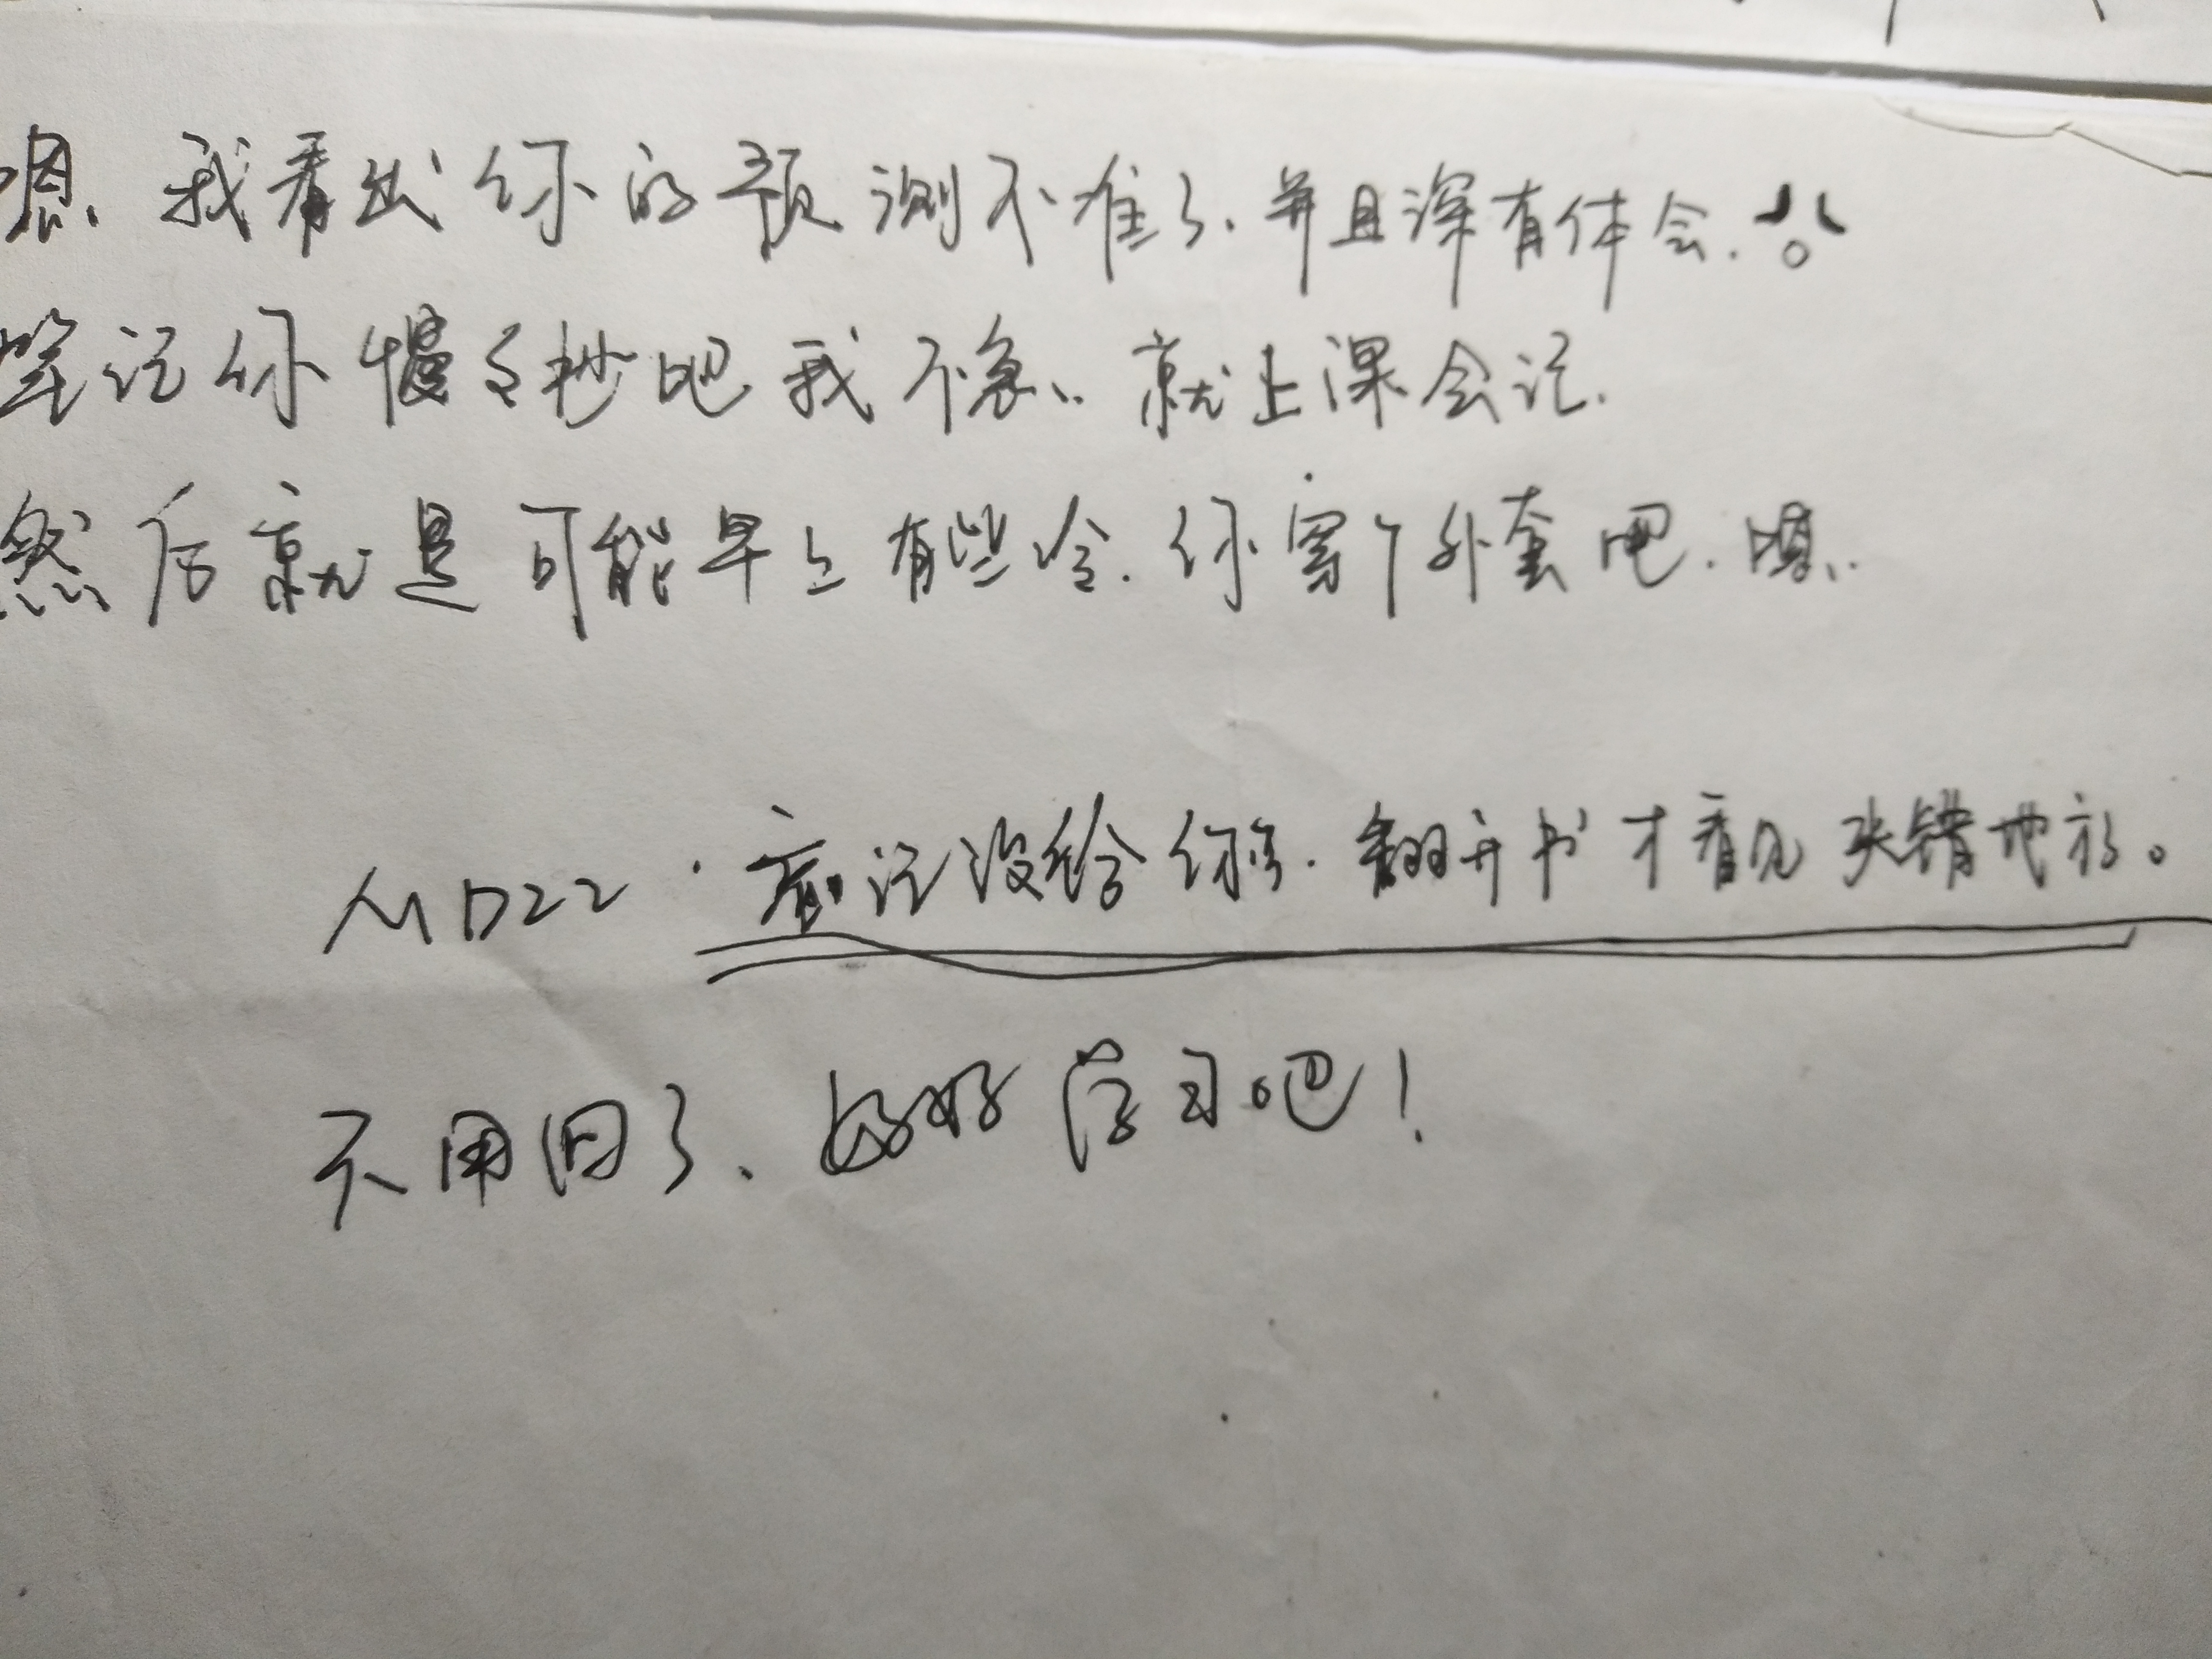 嗯、我看出你的预测不准了、并且深有体会.
笔记你慢々抄吧我不急、就上课会记.
然后就是可能早上有些冷.你穿个外套吧.嗯..
忘记没给你.翻开书才看见夹错地方。
不用回了、好好学习吧!